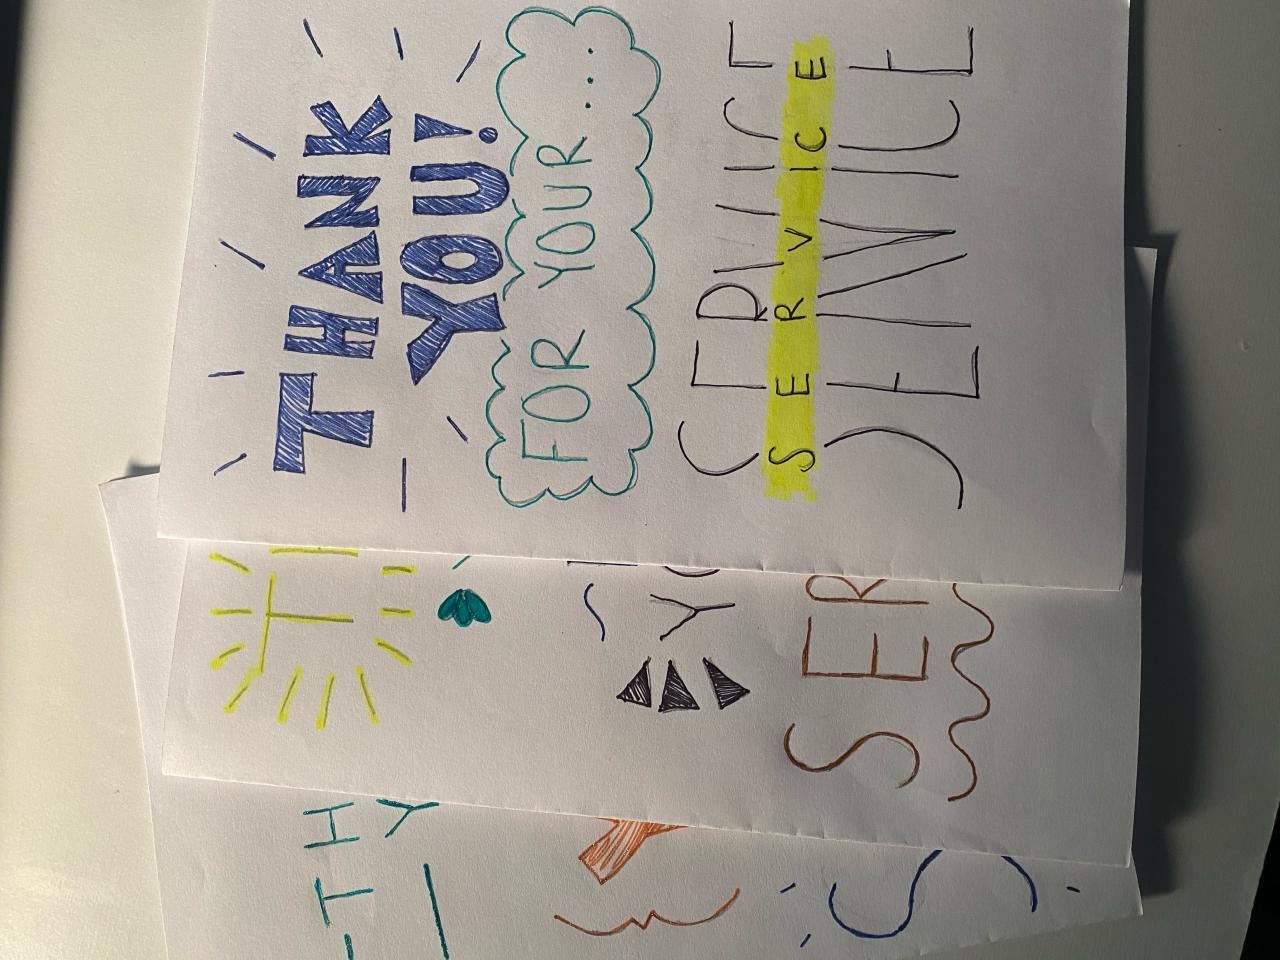 THANK
YOU!
FOR YOUR...
SERVICE
SERVICE
SERVICE
T
YO
SER
TH
Y
Y
S